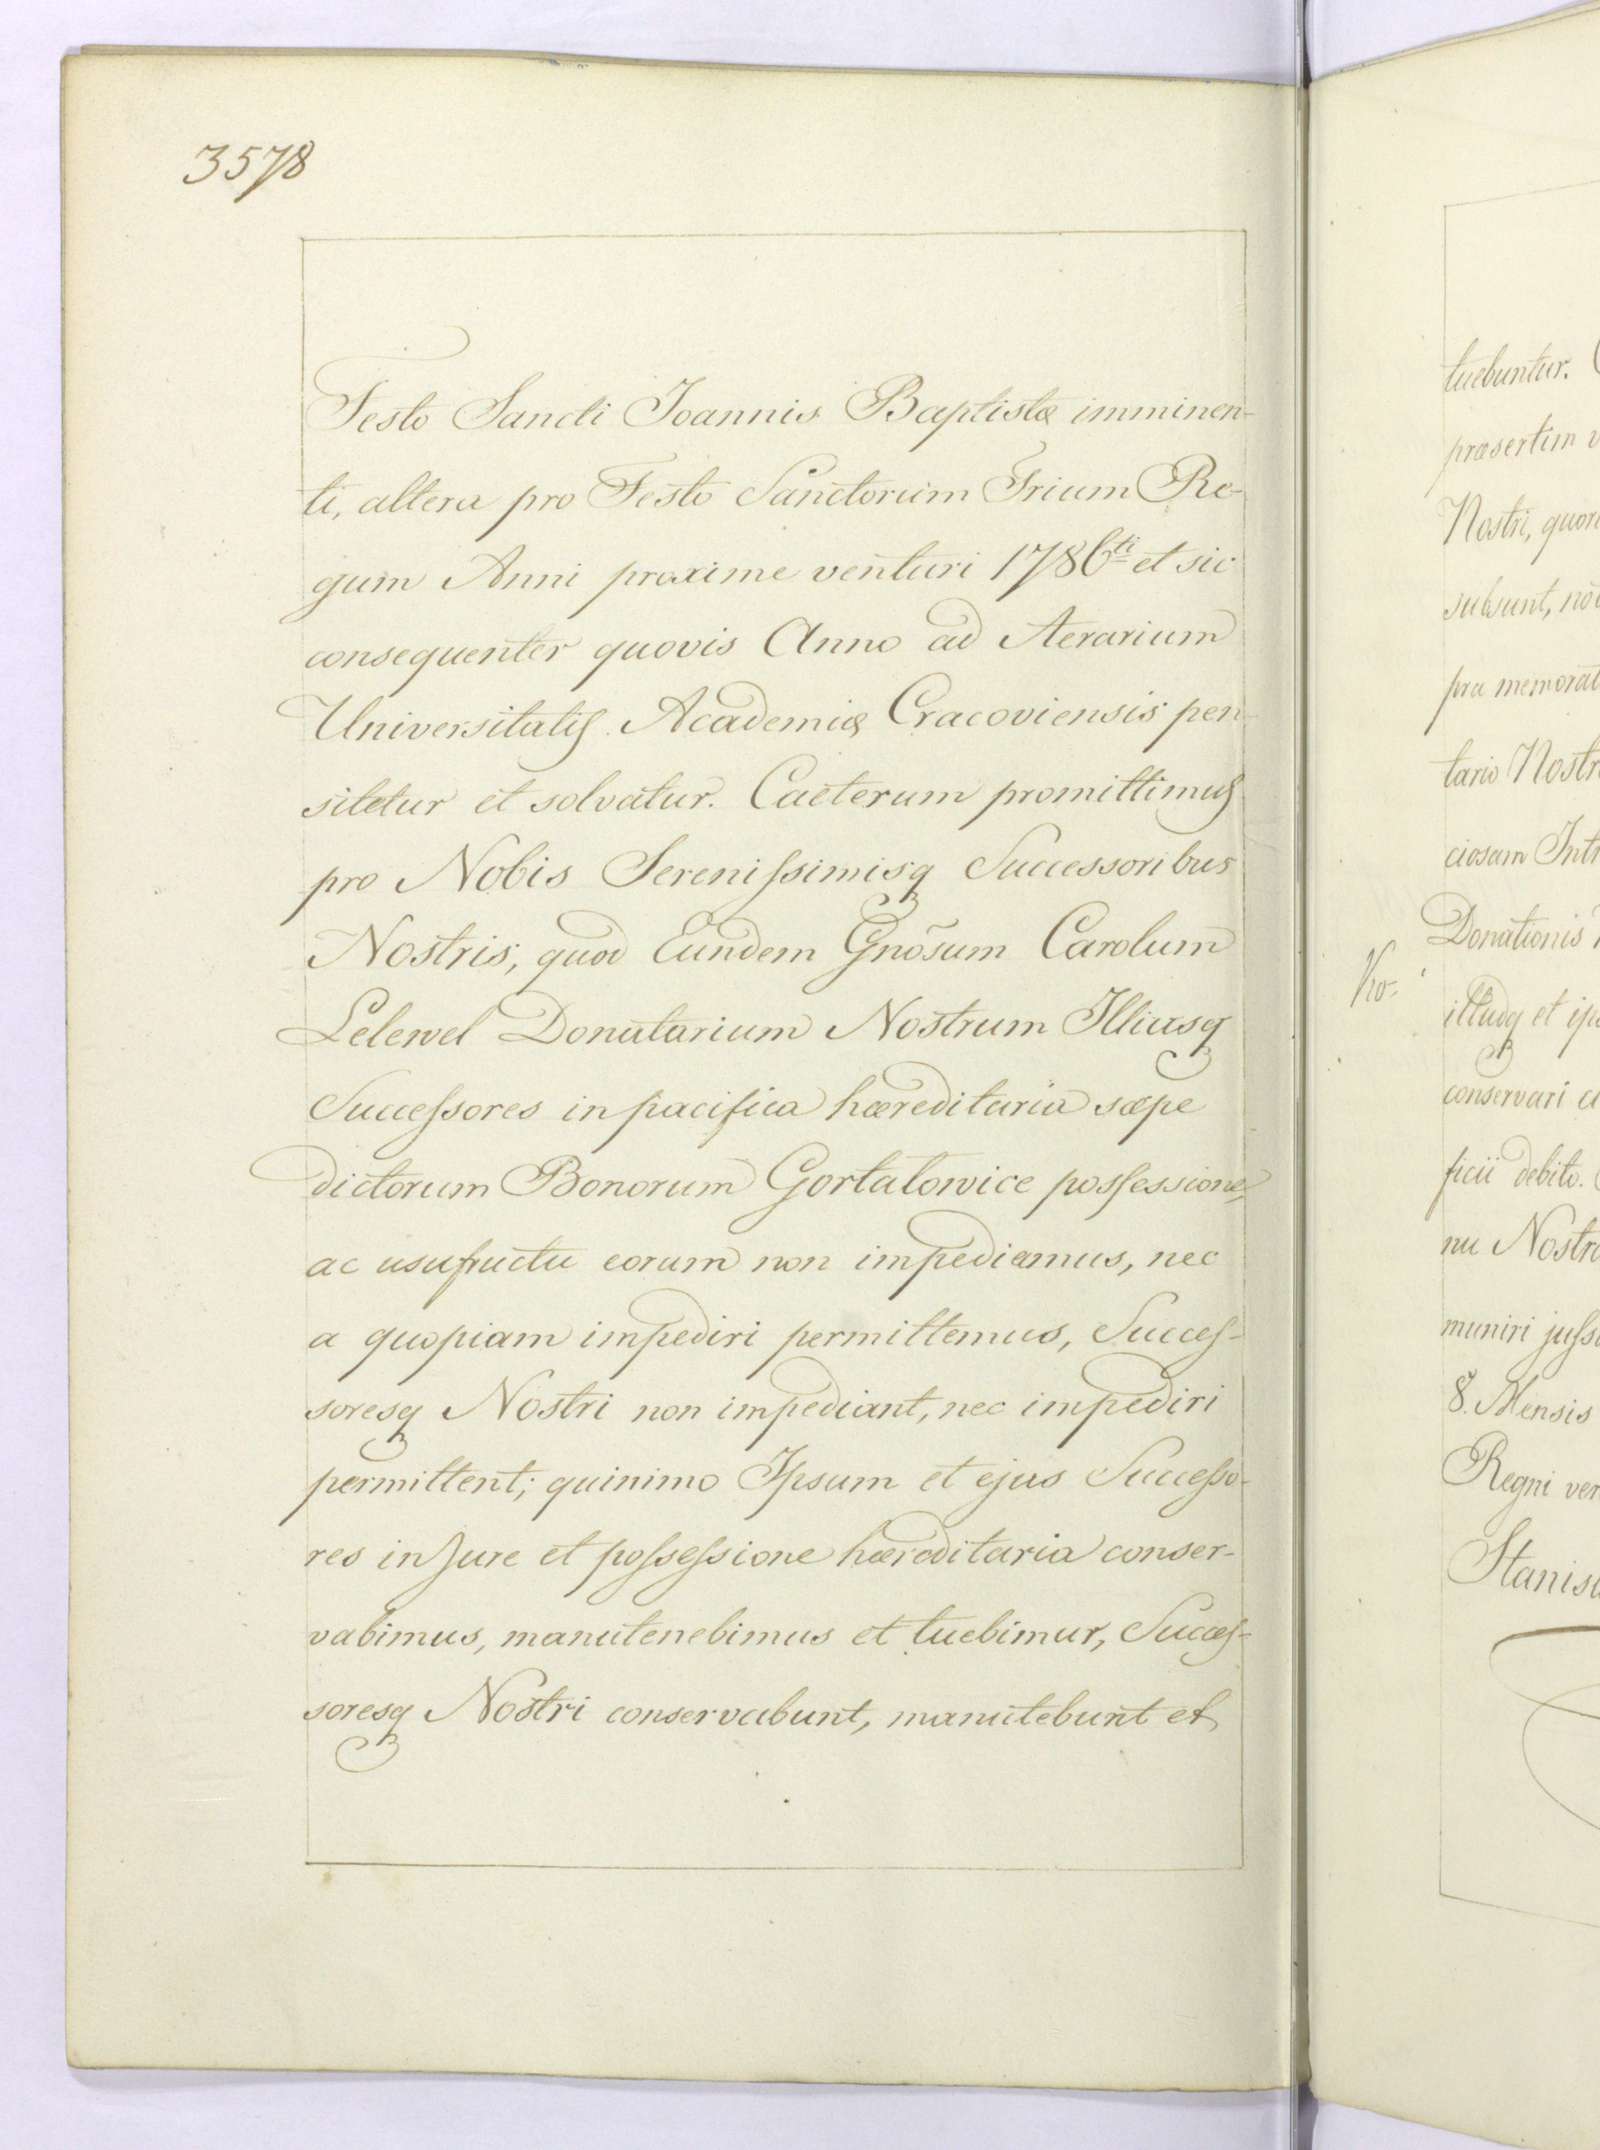 3578
Festo Sancti Joannis Baptistæ imminen-
ti, altera pro Festo Sanctorum Trium Re-
gum Anni proxime venturi 1786ti et sic
consequenter quovis Anno ad Aerarium
Universitatis Academiæ Cracoviensis pen-
sitetur et solvatur. Caeterum promittimus
pro Nobis Serenissimisq Successoribus
Nostris, quod Eundem Gnõsum Carolum
Lelewel Donatarium Nostrum Illiusq
Successores in pacifica hæreditaria sæpe
dictorum Bonorum Gortatowice possessione,
ac usufructu eorum non impediemus, nec
a quopiam impediri permittemus, Succes-
soresq Nostri non impediant, nec impediri
permittent; quinimo Ipsum et ejus Successo-
res in Jure et possessione hæreditaria conser-
vabimus, manutenebimus et tuebimur, Succes-
soresq Nostri conservabunt, manutebunt et
tuebuntur.
præsertim
Nostri,
subsunt,
tario
Donationis
illudq et
conservari
ficii debito.
nu
8. Mensis
Regni